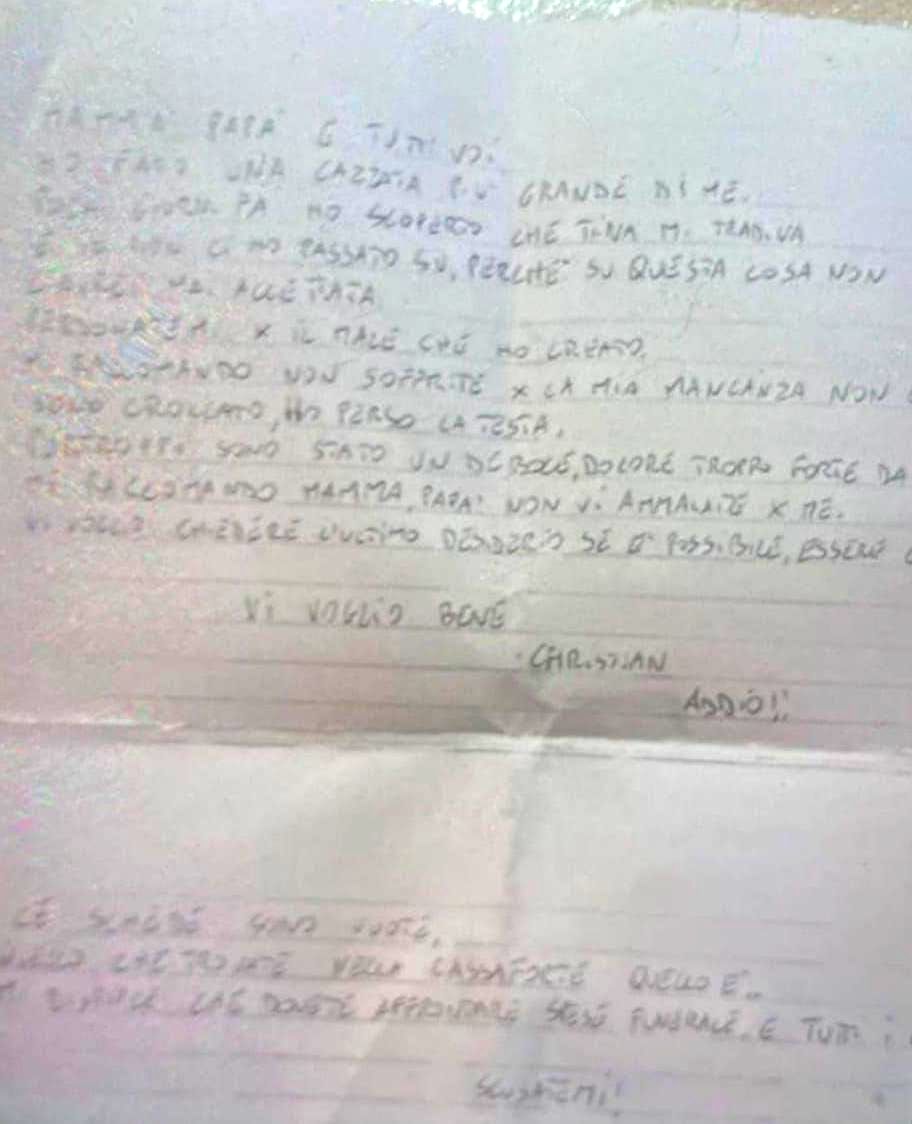 MAMMA PAPÀ E TUTTI VOI
HO FATTO UNA CAZZATA PIÙ GRANDE DI ME.
FA HO SCOPERTO CHE TINA MI TRADIVA
E IO NON CI HO PASSATO SU, PERCHÉ SU QUESTA COSA NON
ACCETTATA
PERDONATEMI X IL MALE CHE HO CREATO.
MI RACCOMANDO NON SOFFRITE X LA MIA MANCANZA NON
SONO CROLLATO, HO PERSO LA TESTA.
PURTROPPO SONO STATO UN DEBOLE, DOLORE TROPPO FORTE DA
MI RACCOMANDO MAMMA, PAPA' NON VI AMMALATE X ME.
VI VOGLIO CHIEDERE L'ULTIMO DESIDERIO SE E' POSSIBILE, ESSERE
VI VOGLIO BENE
CHRISTIAN
ADDIO!!
LE SCHEDE SONO VUOTE,
QUELLO CHE TROVATE NELLA CASSAFORTE QUELLO E'..
CHE DOVETE AFFRONTARE SPESE FUNERALE E TUTTI
SCUSATEMI!